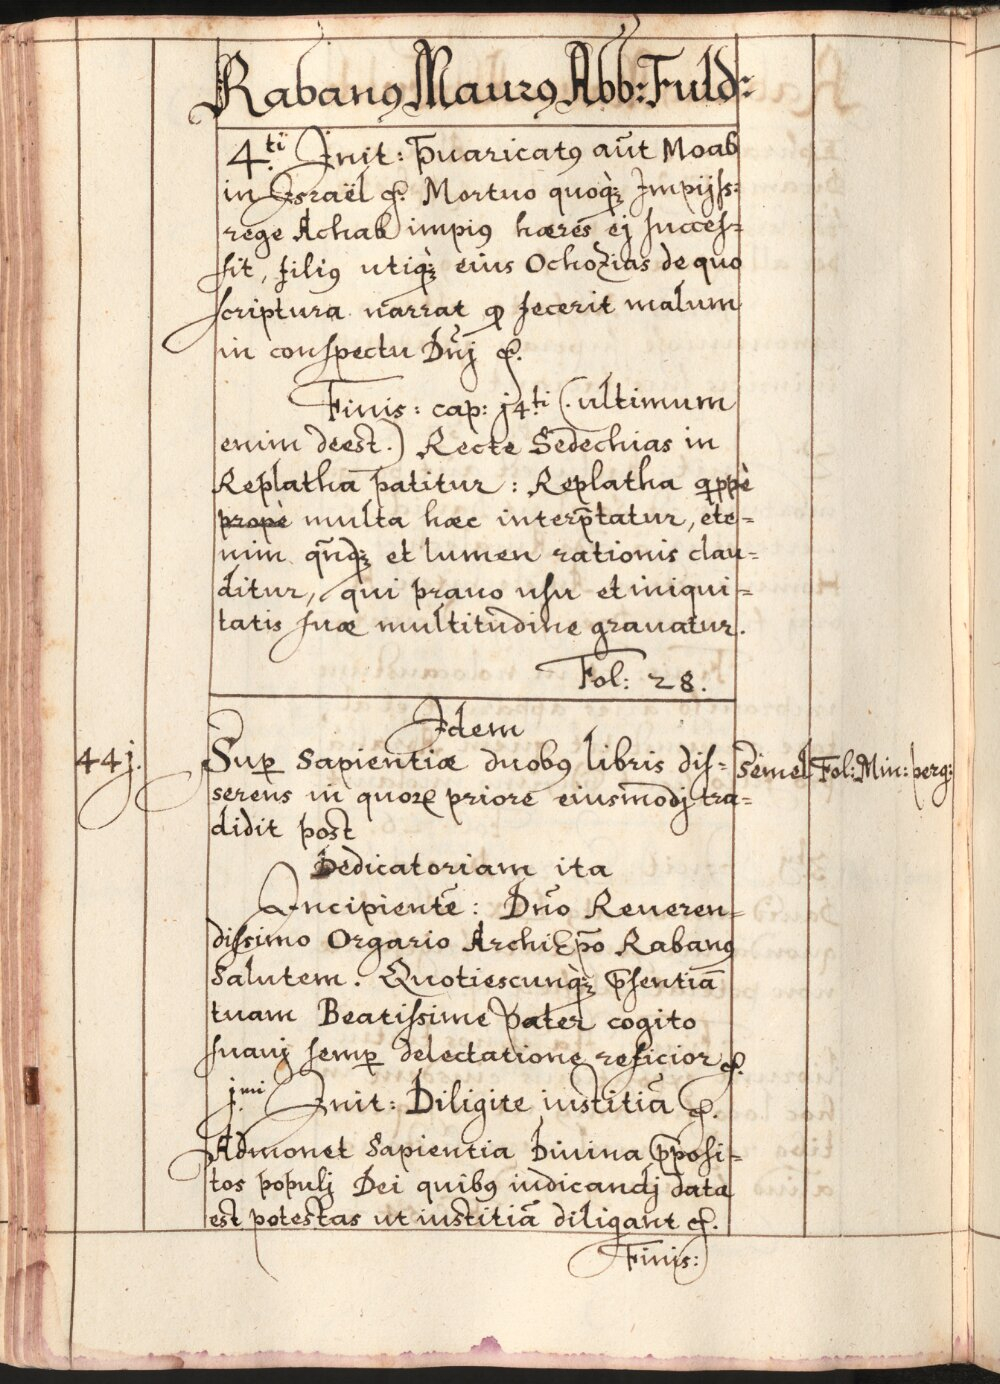 Rabanꝰ Maurꝰ Abb: Fuld:
4.ti Init: P̄uaricatꝰ aūt Moab
in Israël &. Mortuo quoq̀ꝫ Impijſs:
rege Achab impiꝰ hæres ej ſucceſ=
ſit, filiꝰ utiq̀ꝫ eius Ochozias de quo
ſcriptura narrat ꝙ fecerit malum
in conſpectu Dn̄j &.
Finis: cap: j4.ti (. ultimum
enim deest.) Recte Sedechias in
Replatha patitur: Replatha ꝗppè
prope multa hæc interp̄tatur, ete=
nim qn̄dꝫ et lumen rationis clau=
ditur, qui prauo uſu et iniqui=
tatis ſuæ multitudine grauatur.
Fol: 28.
Idem
44j. Suꝑ Sapientiæ duobꝰ libris diſ= Semel Fol: Min: perg:
serens in quoꝝ priore eiusmodj tra=
didit post
Dedicatoriam ita
Incipientē: Dn̄o Reueren=
diſsimo Orgario ArchiEp̄o Rabanꝰ
Salutem. Quotiescunq̀ꝫ p̄ſentiā
tuam Beatiſsime Pater cogito
ſuauj ſemꝑ delectatione reficior &.
j.mi Init: Diligite iustitiā &.
Admonet Sapientia Diuina p̄poſi=
tos populj Dei quibꝰ iudicandj data
est potestas ut iustitiā diligant &.
Finis: